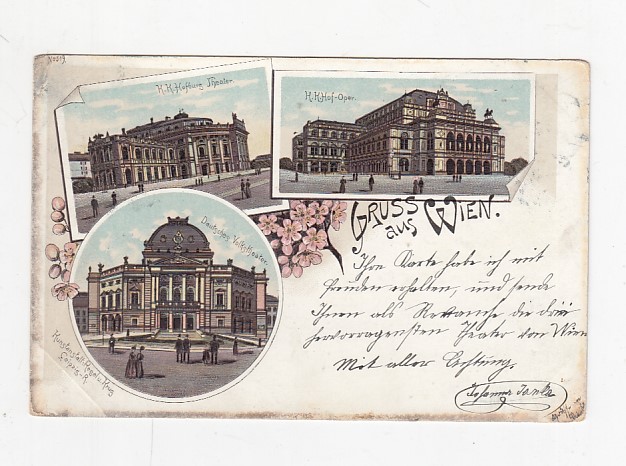 K.K. Hofburg Theater.
K.K. Hof-Oper.
Deutsches Volkstheater.
Kunstanstalt Regel & Krug
Leipzig-R.
GRUSS
aus WIEN.
Ihre Karte habe ich mit
Freuden erhalten, und sende
Ihnen als Revanche die drei
hervorragensten Theater von Wien
Mit aller Achtung.
Johanna